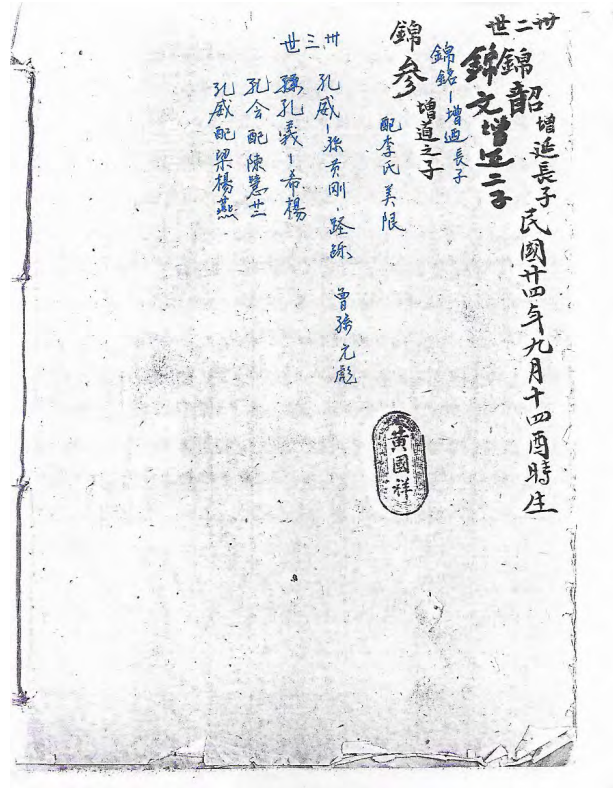 卅二世
錦韶 增延長子 民國廿四年九月十四酉時生
錦文增延二子
錦銘-增迺長子
錦參 增道之子
配李氏美限
卅三世
孔威-孫芳剛.
曾孫元彪
孫孔義-希楊
孔会配陳慧
孔威配梁楊燕
黃國祥